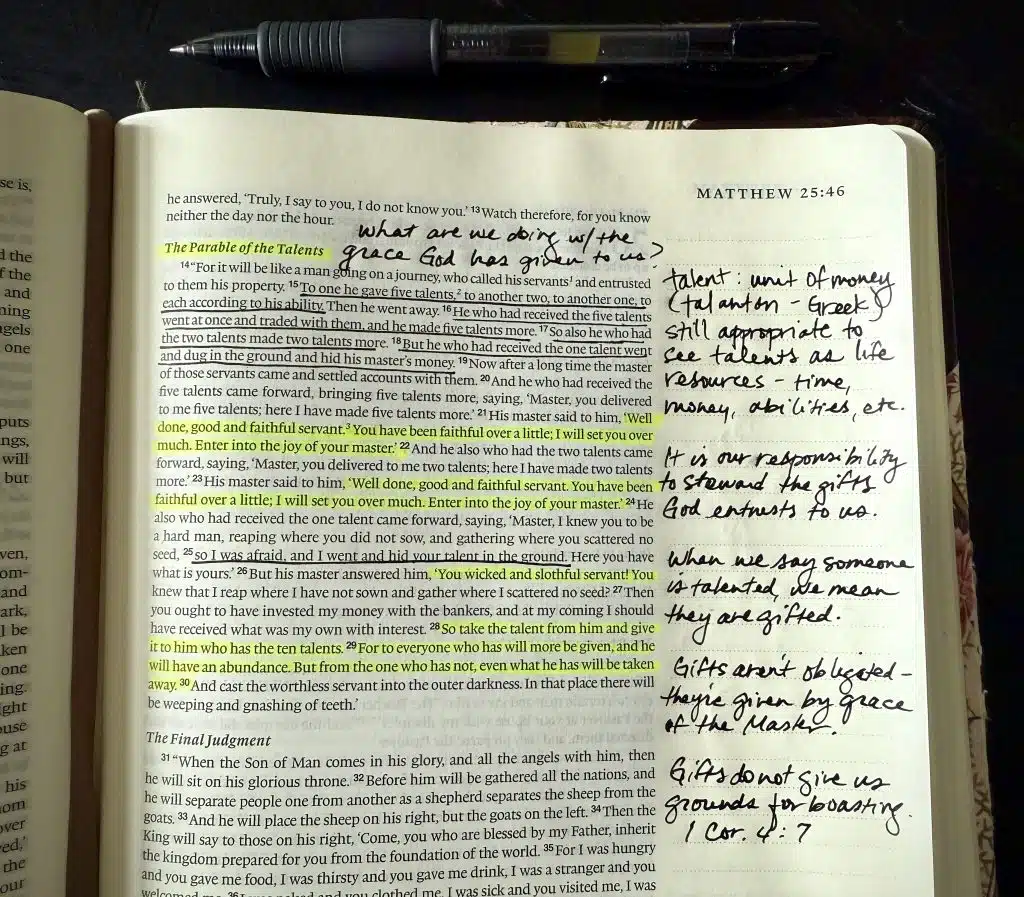 se is,
d the
f the
and
ning
ngels
one
puts
ngs,
will
but
ven,
om-
and
ark,
l be
ken
one
ing.
ght
ouse
g at
his
om
over
ved,'
the
our
MATTHEW 25:46
he answered, ‘Truly, I say to you, I do not know you.’ 13 Watch therefore, for you know
neither the day nor the hour.
What are we doing w/ the
grace God has given to us?
The Parable of the Talents
14 “For it will be like a man going on a journey, who called his servants1 and entrusted
to them his property. 15 To one he gave five talents,2 to another two, to another one, to
each according to his ability. Then he went away. 16 He who had received the five talents
went at once and traded with them, and he made five talents more. 17 So also he who had
the two talents made two talents more. 18 But he who had received the one talent went
and dug in the ground and hid his master’s money. 19 Now after a long time the master
of those servants came and settled accounts with them. 20 And he who had received the
five talents came forward, bringing five talents more, saying, ‘Master, you delivered
to me five talents; here I have made five talents more.’ 21 His master said to him, ‘Well
done, good and faithful servant.3 You have been faithful over a little; I will set you over
much. Enter into the joy of your master.’ 22 And he also who had the two talents came
forward, saying, ‘Master, you delivered to me two talents; here I have made two talents
more.’ 23 His master said to him, ‘Well done, good and faithful servant. You have been
faithful over a little; I will set you over much. Enter into the joy of your master.’ 24 He
also who had received the one talent came forward, saying, ‘Master, I knew you to be
a hard man, reaping where you did not sow, and gathering where you scattered no
seed, 25 so I was afraid, and I went and hid your talent in the ground. Here you have
what is yours.’ 26 But his master answered him, ‘You wicked and slothful servant! You
knew that I reap where I have not sown and gather where I scattered no seed? 27 Then
you ought to have invested my money with the bankers, and at my coming I should
have received what was my own with interest. 28 So take the talent from him and give
it to him who has the ten talents. 29 For to everyone who has will more be given, and he
will have an abundance. But from the one who has not, even what he has will be taken
away. 30 And cast the worthless servant into the outer darkness. In that place there will
be weeping and gnashing of teeth.’
The Final Judgment
31 “When the Son of Man comes in his glory, and all the angels with him, then
he will sit on his glorious throne. 32 Before him will be gathered all the nations, and
he will separate people one from another as a shepherd separates the sheep from the
goats. 33 And he will place the sheep on his right, but the goats on the left. 34 Then the
King will say to those on his right, ‘Come, you who are blessed by my Father, inherit
the kingdom prepared for you from the foundation of the world. 35 For I was hungry
and you gave me food, I was thirsty and you gave me drink, I was a stranger and you
welcomed me, 36 I was naked and you clothed me, I was sick and you visited me, I was
talent: unit of money
(talanton - Greek)
still appropriate to
see talents as life
resources - time,
money, abilities, etc.
It is our responsibility
to steward the gifts
God entrusts to us.
When we say someone
is talented, we mean
they are gifted.
Gifts aren't obligated -
they're given by grace
of the Master.
Gifts do not give us
grounds for boasting.
1 Cor. 4:7